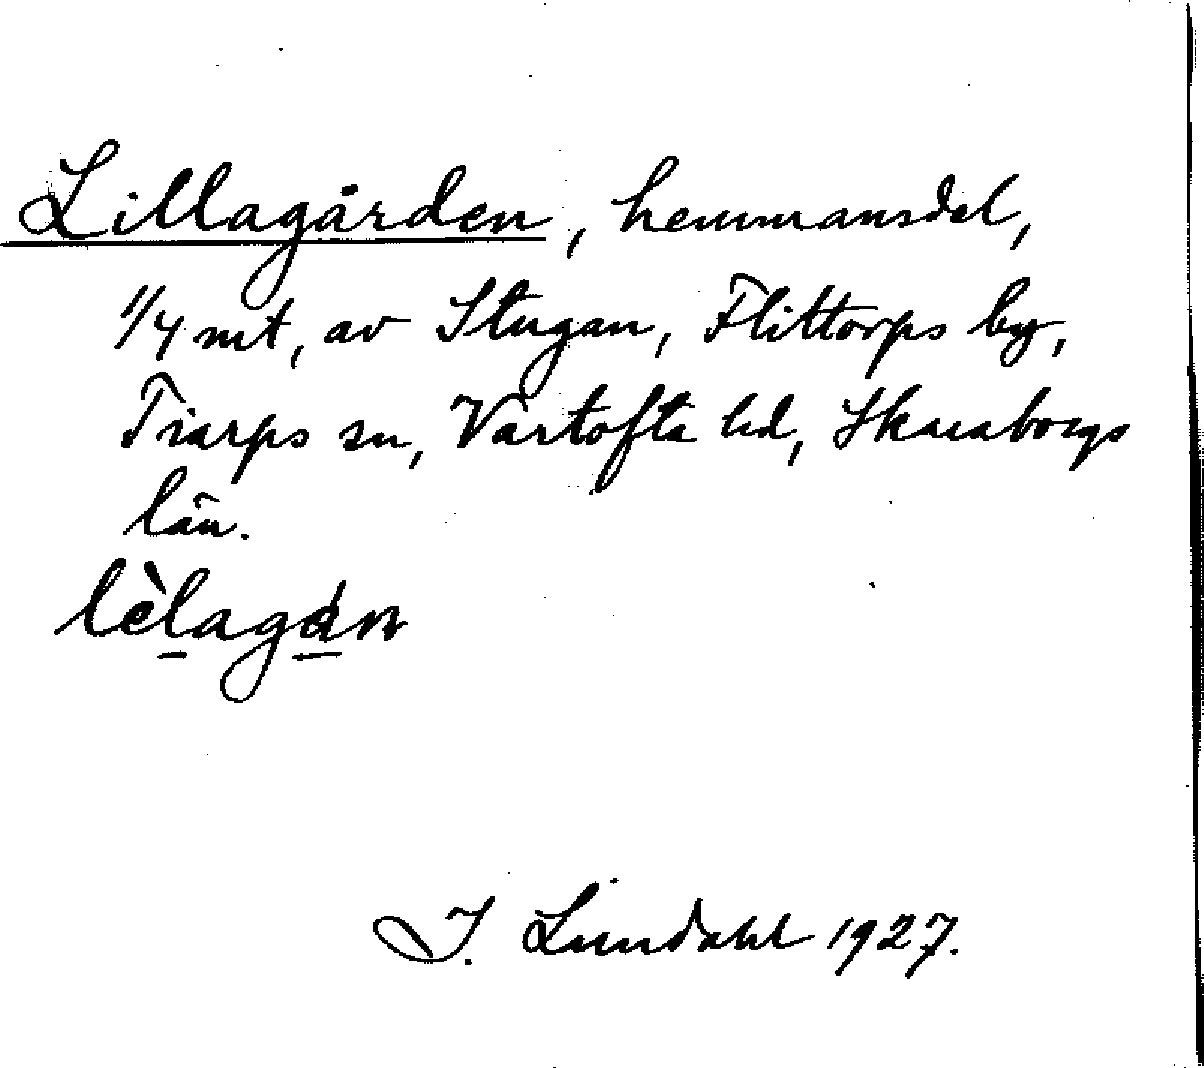 Lillagården, hemmansdel,
1/4 mt, av Stugan, Flittorps by,
Tiarps sn, Vartofta hd, Skaraborgs
län.
I. Lundahl 1927.